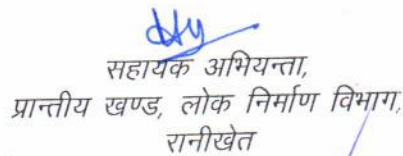 सहायक अभियन्ता,
प्रान्तीय खण्ड, लोक निर्माण विभाग,
रानीखेत